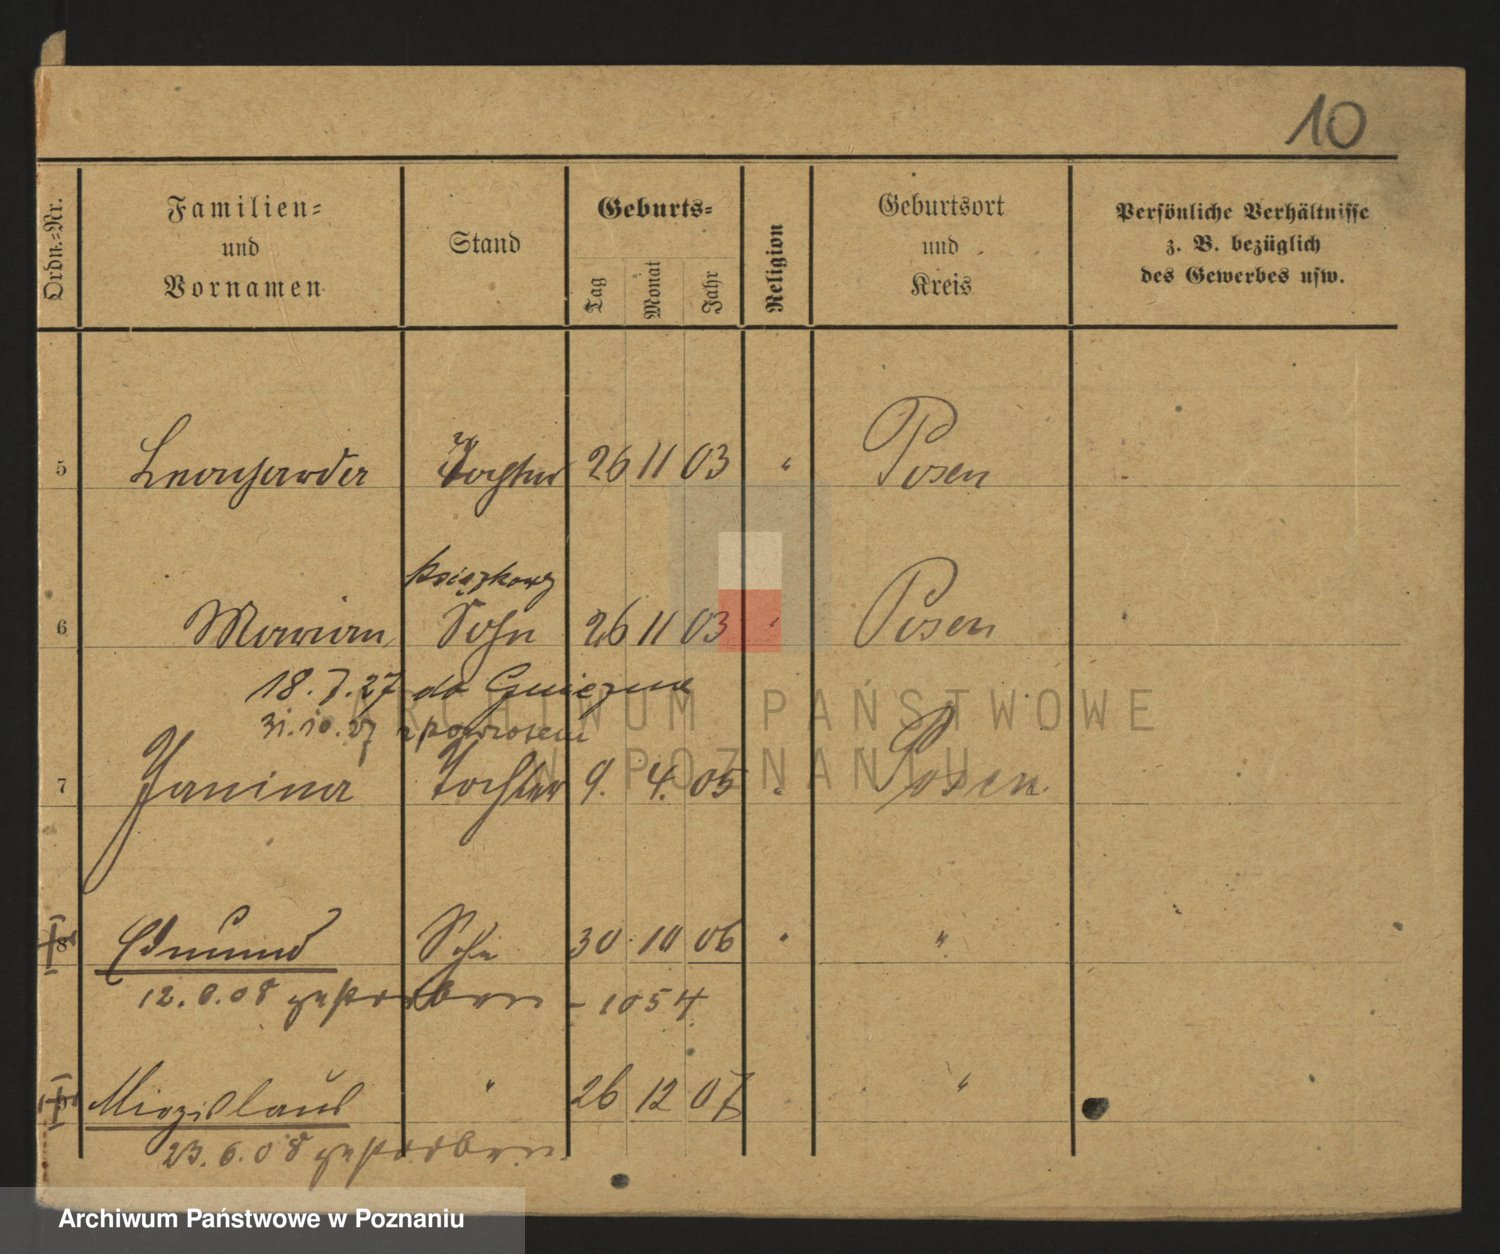 10
Ordn.-Nr.
Familien-
und
Vornamen
Stand
Geburts-
Tag
Monat
Jahr
Religion
Geburtsort
und
Kreis
Persönliche Verhältnisse
z. B. bezüglich
des Gewerbes usw.
5 Leonharda Tochter 26 11 03 " Posen
Książkowy
6 Marian, Sohn 26 11 03 " Posen
18.7.27 do Gniezna
31.10.27 z powrotem
7 Janina Tochter 9. 4. 05 " Posen.
8 Edmund Sohn 30 10 06 " "
12.6.08 gestorben - 1054
9 Miezislaus " 26 12 07 "
23.6.08 gestorben.
ARCHIWUM PAŃSTWOWE
W POZNANIU
Archiwum Państwowe w Poznaniu